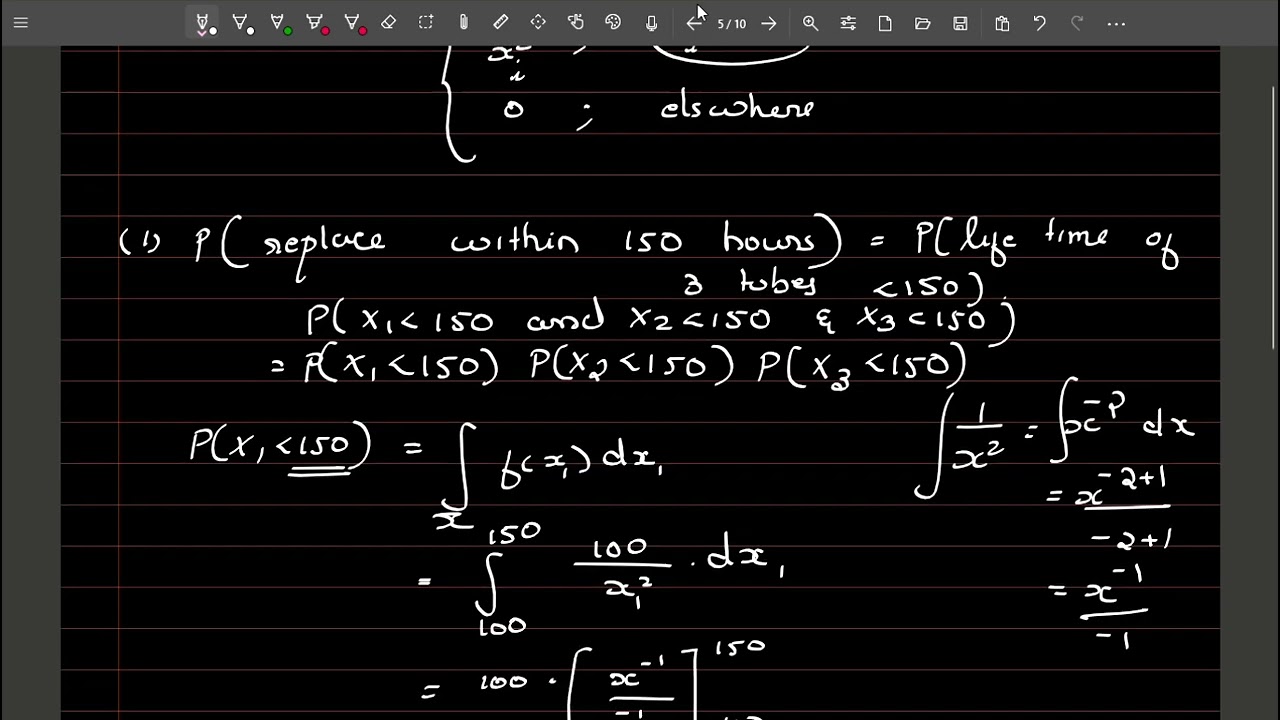 5/10
0 ; elswhere
(1) P( replace within 150 hours) = P(life time of
3 tubes <150)
P( X1 < 150 and X2 < 150 & X3 < 150)
= P(X1 < 150) P(X2 < 150) P(X3 < 150)
P(X1 < 150) = ∫x f(x1) dx1
= ∫100^150 100/x1² . dx1
= 100 . [x⁻¹/-1] 150
∫ 1/x² = ∫ x^-2 dx
= x^-2+1 / -2+1
= x⁻¹ / -1